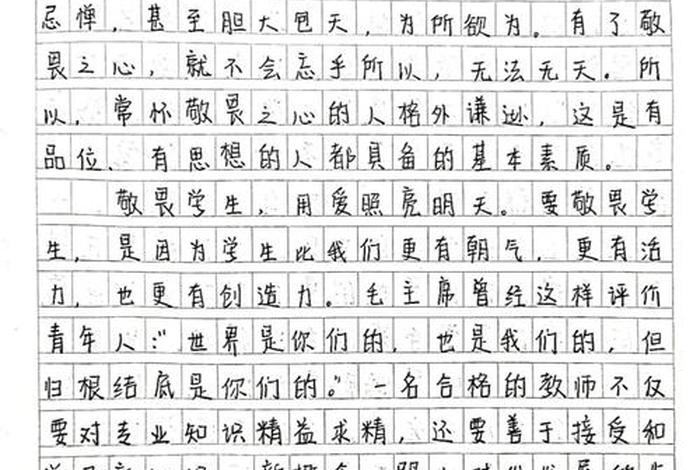 忌惮，甚至胆大包天，为所欲为。有了敬
畏之心，就不会忘乎所以，无法无天。所
以，常怀敬畏之心的人格外谦逊，这是有
品位、有思想的人都具备的基本素质。
敬畏学生，用爱照亮明天。要敬畏学
生，是因为学生比我们更有朝气，更有活
力，也更有创造力。毛主席曾经这样评价
青年人：“世界是你们的，也是我们的，但
归根结底是你们的。”一名合格的教师不仅
要对专业知识精益求精，还要善于接受和